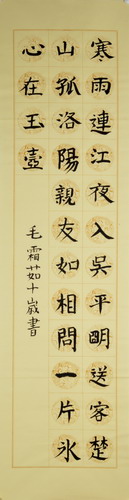 寒雨連江夜入吳平朙送客楚
山孤洛陽親友如相問一片氷
心在玉壺
毛霜茹十歲書